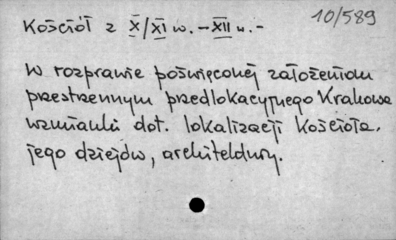 10/589
Kościół z X/XI w. - XII w. -
W rozprawie poświęconej założeniom
przestrzennym przedlokacyjnego Krakowa
wzmianki dot. lokalizacji Kościoła,
jego dziejów, architektury.